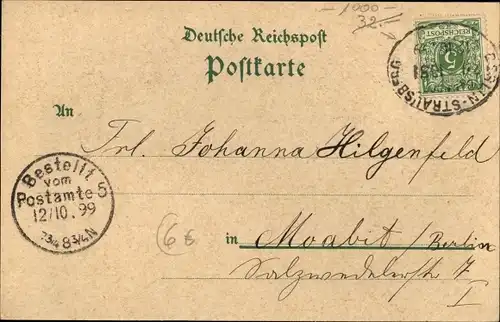 1000
32.
Deutsche Reichspost
Postkarte
REICHSPOST
5
An
Frl. Johanna Hilgenfeld
Bestellt
vom
Postamte 5
12/10.99
7¾ 8¾N
6
in Moabit/Berlin
Salzwedelerstr 7
I